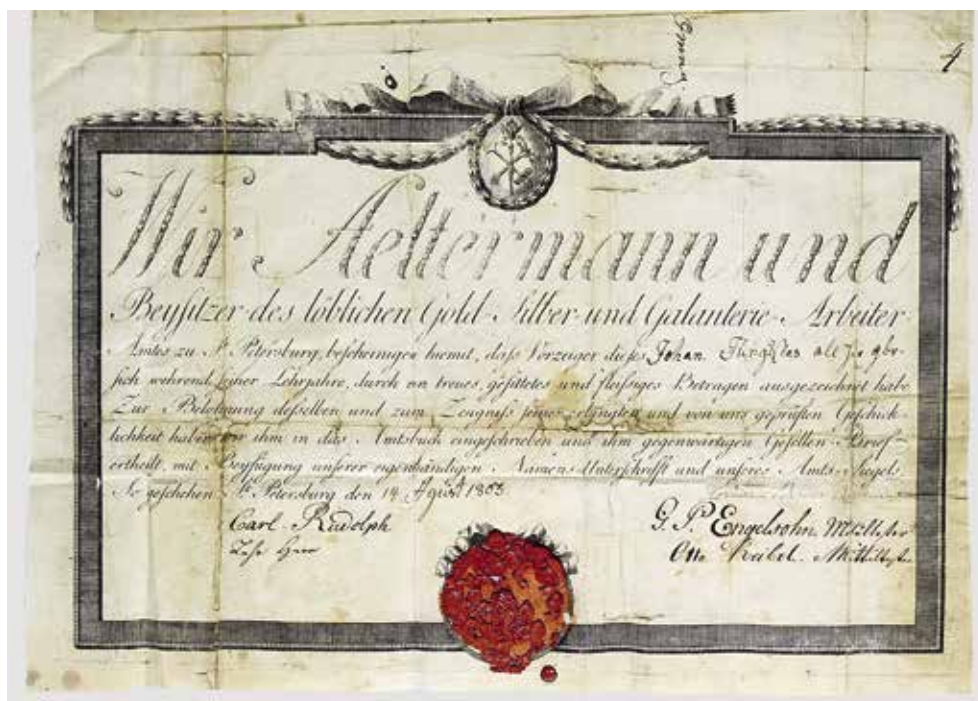 Wir Aeltermann und
Beysitzer des löblichen Gold-Silber-und Galanterie-Arbeiter
Amtes zu St. Petersburg, bescheinigen hiemit, dass Vorzeiger dieses Johan
sich während seiner Lehrjahre, durch ein treues, gesittetes und fleissiges Betragen ausgezeichnet habe
Zur Belohnung desselben und zum Zeugniss seiner erlangten und von uns geprüften Geschick-
lichkeit haben wir ihm in das Amtsbuch eingeschrieben und ihm gegenwärtigen Gesellen-Brief-
ertheilt, mit Beyfügung unserer eigenhändigen Namens-Unterschrifft und unseres Amts-Siegels
So geschehen St. Petersburg den 14 1803
Carl Rudolph
Herr
G. P. Engelsohn
Otto